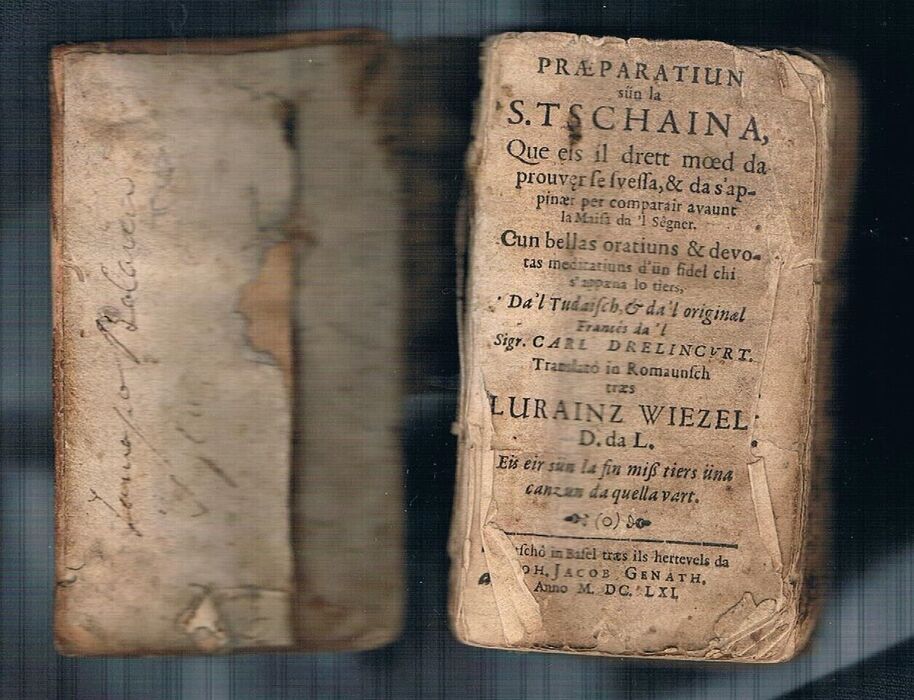 PRÆPARATIUN
sün la
S. TSCHAINA,
Que eis il drett mœd da
prouver ſe ſveſſa, & da s'ap-
pinær per comparair avaunt
la Maiſa da 'l Sêgner.
Cun bellas oratiuns & devo-
tas meditatiuns d'ün fidel chi
s'appæna lo tiers,
Da'l Tudaiſch, & da'l originæl
Francês da 'l
Sigr. CARL DRELINCVRT.
Translatò in Romaunſch
træs
LURAINZ WIEZEL
D. da L.
Eis eir sün la fin miß tiers üna
canzun da quella vart.
(o)
ſchò in Baſel træs ils hertevels da
OH. JACOB GENATH.
Anno M. DC. LXI.